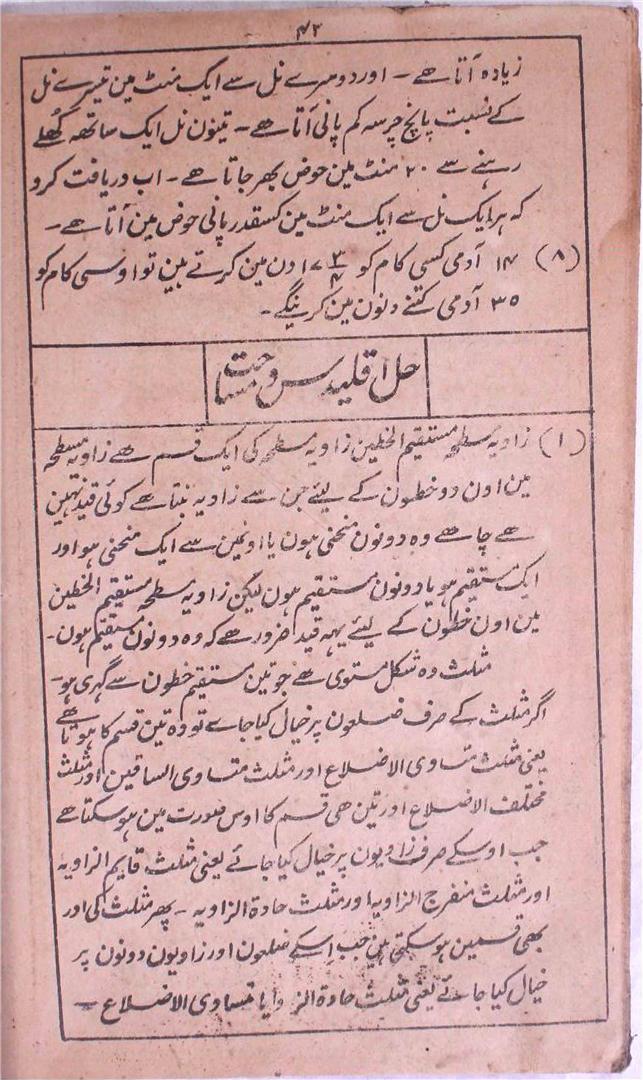 ۴۲
زیادہ آتا ھے ۔ اور دوسرے نل سے ایک منٹ مین تیسرے نل
کے نسبت پانچ چرسہ کم پانی آتا ھے ۔ تینون نل ایک ساتھہ کُھلے
رہنے سے ۲۰ منٹ مین حوض بھر جاتا ھے ۔ اب دریافت کرو
کہ ہر ایک نل سے ایک منٹ مین کسقدر پانی حوض مین آتا ھے ۔
(۸) ۱۴ آدمی کسی کام کو ۱۷ ۳/۴ دن مین کرتے ہین تو اوسی کام کو
۳۵ آدمی کتنے دنون مین کرینگے ۔
حل اقلیدس و مساحت
(۱) زاویہ سطحہ مستقیم الخطین زاویہ سطحہ کی ایک قسم ھے زاویہ مسطحہ
مین اون دو خطون کے لیئے جن سے زاویہ بنتا ھے کوئی قید نہین
ھے چاھے وہ دونون منحنی ہون یا اونمین سے ایک منحنی ہو اور
ایک مستقیم ہو یا دونون مستقیم ہون لیکن زاویہ سطحہ مستقیم الخطین
مین اون خطون کے لیئے یہہ قید ضرور ھے کہ وہ دونون مستقیم ہون ۔
مثلث وہ شکل مستوی ھے جو تین مستقیم خطون سے گھری ہو ۔
اگر مثلث کے صرف ضلعون پر خیال کیا جاے تو وہ تین قسم کا ہوتا ھے
یعنی مثلث متساوی الاضلاع اور مثلث متساوی الساقین اور مثلث
مختلف الاضلاع اور تین ھی قسم کا اوس صورت مین ہو سکتا ھے
جب اوسکے صرف زاویون پر خیال کیا جائے یعنی مثلث قایم الزاویہ
اور مثلث منفرج الزاویہ اور مثلث حادۃ الزاویہ ۔ پھر مثلث کی اور
بھی قسمین ہو سکتی ہین جب اسکے ضلعون اور زاویون دونون پر
خیال کیا جائے یعنی مثلث حادۃ الزوایا متساوی الاضلاع ۔